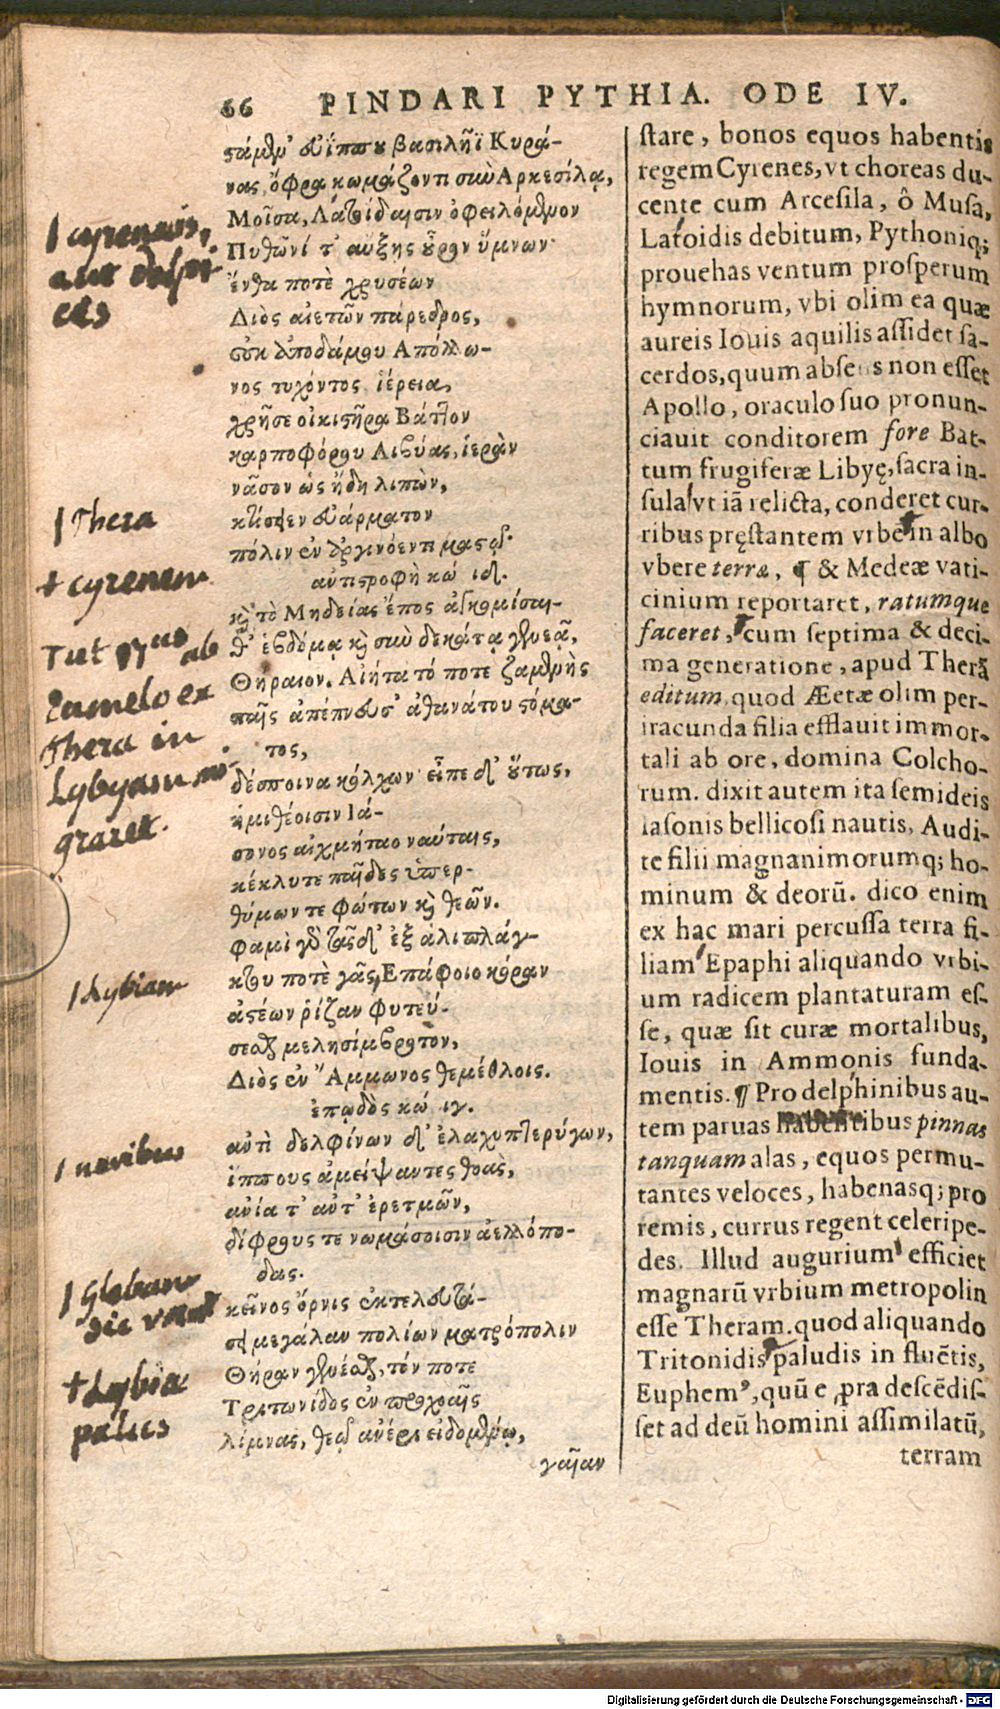 66 PINDARI PYTHIA. ODE IV.
στάμεν εὐίππου βασιλῆϊ Κυρά-
νας, ὄφρα κωμάζοντι σὺν Ἀρκεσίλᾳ,
Μοῖσα, Λατοίδαισιν ὀφειλόμενον
Πυθῶνί τ' αὔξῃς οὖρον ὕμνων·
ἔνθα ποτὲ χρυσέων
Διὸς αἰετῶν πάρεδρος,
οὐκ ἀποδάμου Ἀπόλλω-
νος τυχόντος ἱέρεια,
χρῆσε οἰκιστῆρα Βάττον
καρποφόρου Λιβύας, ἱερὰν
νᾶσον ὡς ἤδη λιπὼν,
κτίσσεν εὐάρματον
πόλιν ἐν ἀργινόεντι μαστῷ.
ἀντιστροφὴ κώ. ιδ.
καὶ τὸ Μηδείας ἔπος ἀγκομίσαι-
θ' ἑβδόμᾳ καὶ σὺν δεκάτᾳ γενεᾷ,
Θήραιον. Αἰήτα τό ποτε ζαμενὴς
παῖς ἀπέπνευσ' ἀθανάτου στόμα-
τος,
δέσποινα κόλχων· εἶπε δ' οὕτως,
ἡμιθέοισιν Ἰά-
σονος αἰχμήταο ναύταις,
κέκλυτε παῖδες ὑπερ-
θύμων τε φώτων καὶ θεῶν.
φαμὶ γὰρ τᾶσδ' ἐξ ἁλιπλάγ-
κτου ποτὲ γᾶς, Ἐπάφοιο κόραν
ἀστέων ῥίζαν φυτεύ-
σεσθαι μελησίμβροτον,
Διὸς ἐν Ἄμμωνος θεμέθλοις.
ἐπῳδὸς κώ. ιγ.
ἀντὶ δελφίνων δ' ἐλαχυπτερύγων,
ἵππους ἀμείψαντες θοὰς,
ἁνία τ' ἀντ' ἐρετμῶν,
δίφρους τε νωμάσοισιν ἀελλόπο-
δας.
κεῖνος ὄρνις ἐκτελευτά-
σει μεγάλαν πολίων ματρόπολιν
Θήραν γενέσθαι, τόν ποτε
Τριτωνίδος ἐν προχοαῖς
λίμνας, θεῷ ἀνέρι εἰδομένῳ,
γαῖαν
stare, bonos equos habentis
regem Cyrenes, vt choreas du-
cente cum Arcesila, ô Musa,
Latoidis debitum, Pythoniq;
prouehas ventum prosperum
hymnorum, vbi olim ea quæ
aureis Iouis aquilis assidet sa-
cerdos, quum absens non esset
Apollo, oraculo suo pronun-
ciauit conditorem fore Bat-
tum frugiferæ Libyę, sacra in-
sula vt iā relicta, conderet cur-
ribus pręstantem vrbē in albo
vbere terræ, ¶ & Medeæ vati-
cinium reportaret, ratumque
faceret, cum septima & deci-
ma generatione, apud Therā
editum, quod Æetæ olim per-
iracunda filia efflauit immor-
tali ab ore, domina Colcho-
rum. dixit autem ita semideis
Iasonis bellicosi nautis, Audi-
te filii magnanimorumq; ho-
minum & deorū. dico enim
ex hac mari percussa terra fi-
liam Epaphi aliquando vrbi-
um radicem plantaturam es-
se, quæ sit curæ mortalibus,
Iouis in Ammonis funda-
mentis. ¶ Pro delphinibus au-
tem paruas habentibus pinnas
tanquam alas, equos permu-
tantes veloces, habenasq; pro
remis, currus regent celeripe-
des. Illud augurium efficiet
magnarū vrbium metropolin
esse Theram. quod aliquando
Tritonidis paludis in fluētis,
Euphem⁹, quū e ꝓra descēdis-
set ad deū homini assimilatū,
terram
| cyrenais,
aut delphi
ces
| Thera
+ cyrenem
Tut ab
Zamelo ex
Thera in
Lybyam mi-
graret.
| Lybiam
| navibus
| Glebam
+ Lybia
palus
Digitalisierung gefördert durch die Deutsche Forschungsgemeinschaft - DFG